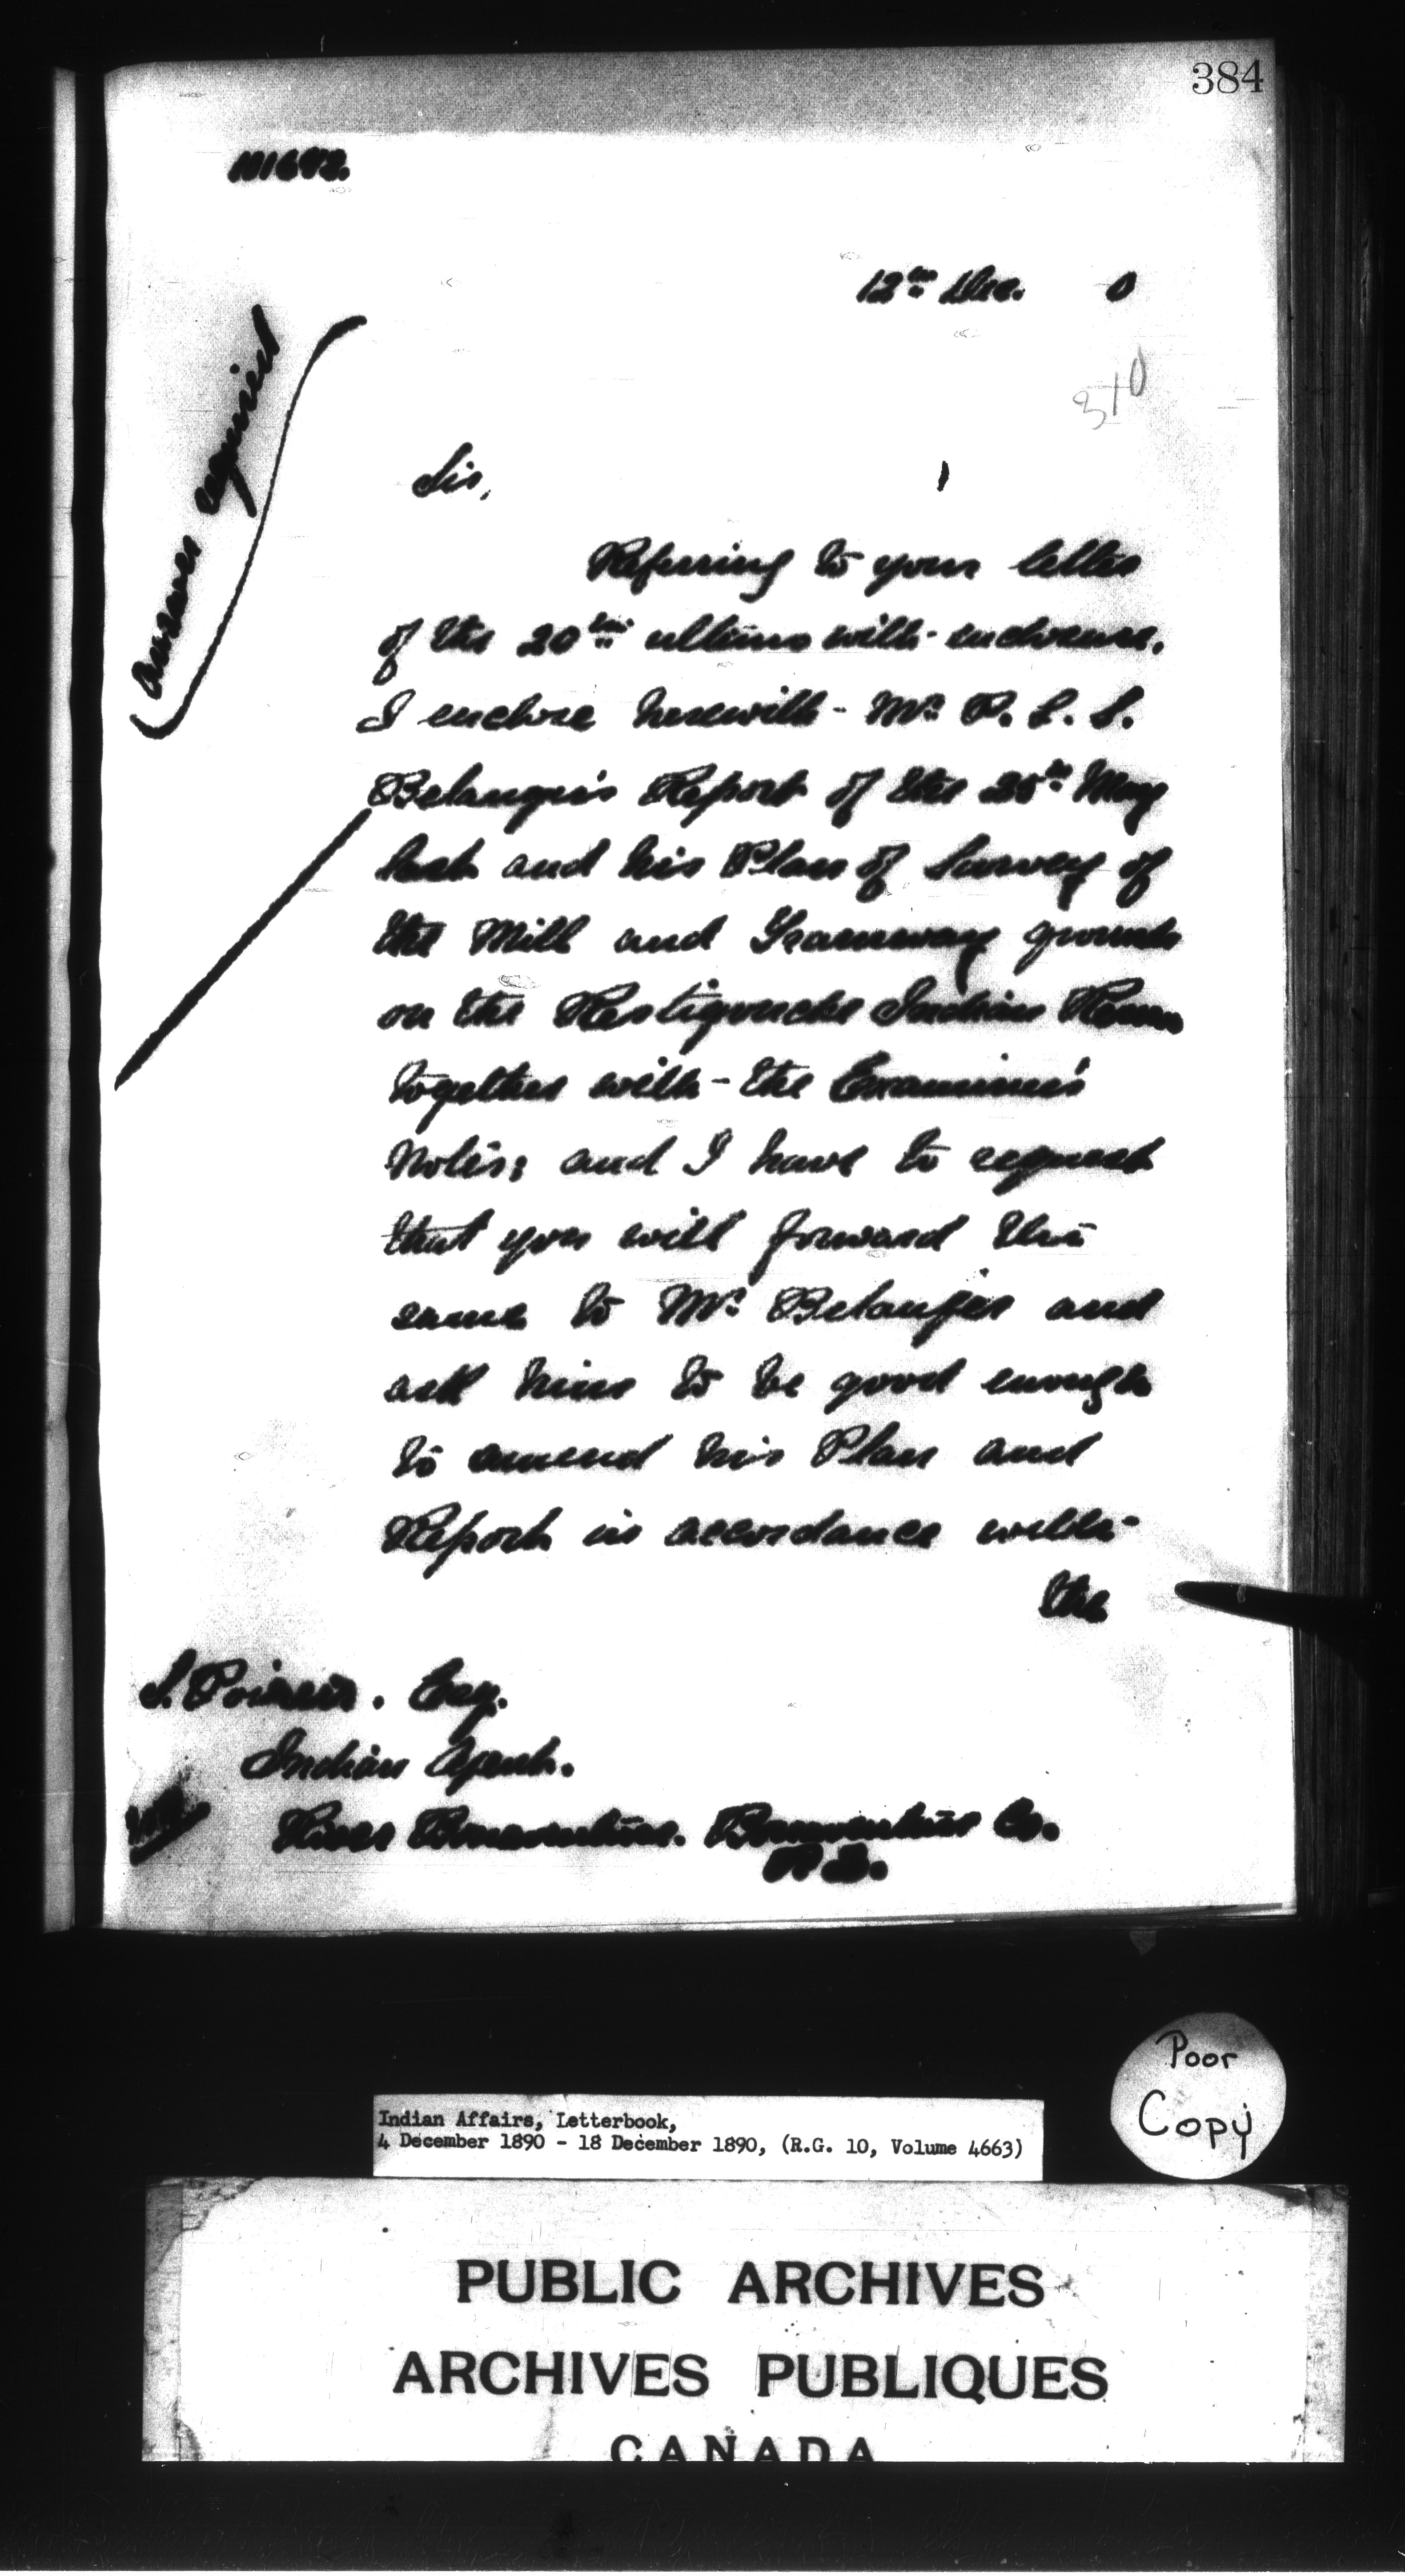 384
12th Dec. 0
310
answer required
Sir,
Referring to your letter
of the 20th ultimo with enclosure,
I enclose herewith - Mr. P. L. S.
Belanger's Report of the 25th May
last and his Plan of Survey of
the Mill and Tramway grounds
on the Restigouche Indian Reserve
together with - the Examiner's
Notes; and I have to request
that you will forward the
same to Mr. Belanger and
ask him to be good enough
to amend his Plan and
Report in accordance with
the
Poirier. Esq.
Indian Agent.
River Bonaventure. Bonaventure Co.
P.Q.
Poor
Copy
Indian Affairs, Letterbook,
4 December 1890 - 18 December 1890, (R.G. 10, Volume 4663)
PUBLIC ARCHIVES
ARCHIVES PUBLIQUES
CANADA